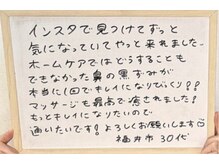 インスタで見つけてずっと
気になっていてやっと来れました。
ホームケアではどうすることも
できなかった鼻の黒ずみが
本当に1回でキレイになりびっくり!!
マッサージも最高で癒されました!
もっとキレイになりたいので
通いたいです!よろしくお願いします
福井市 30代